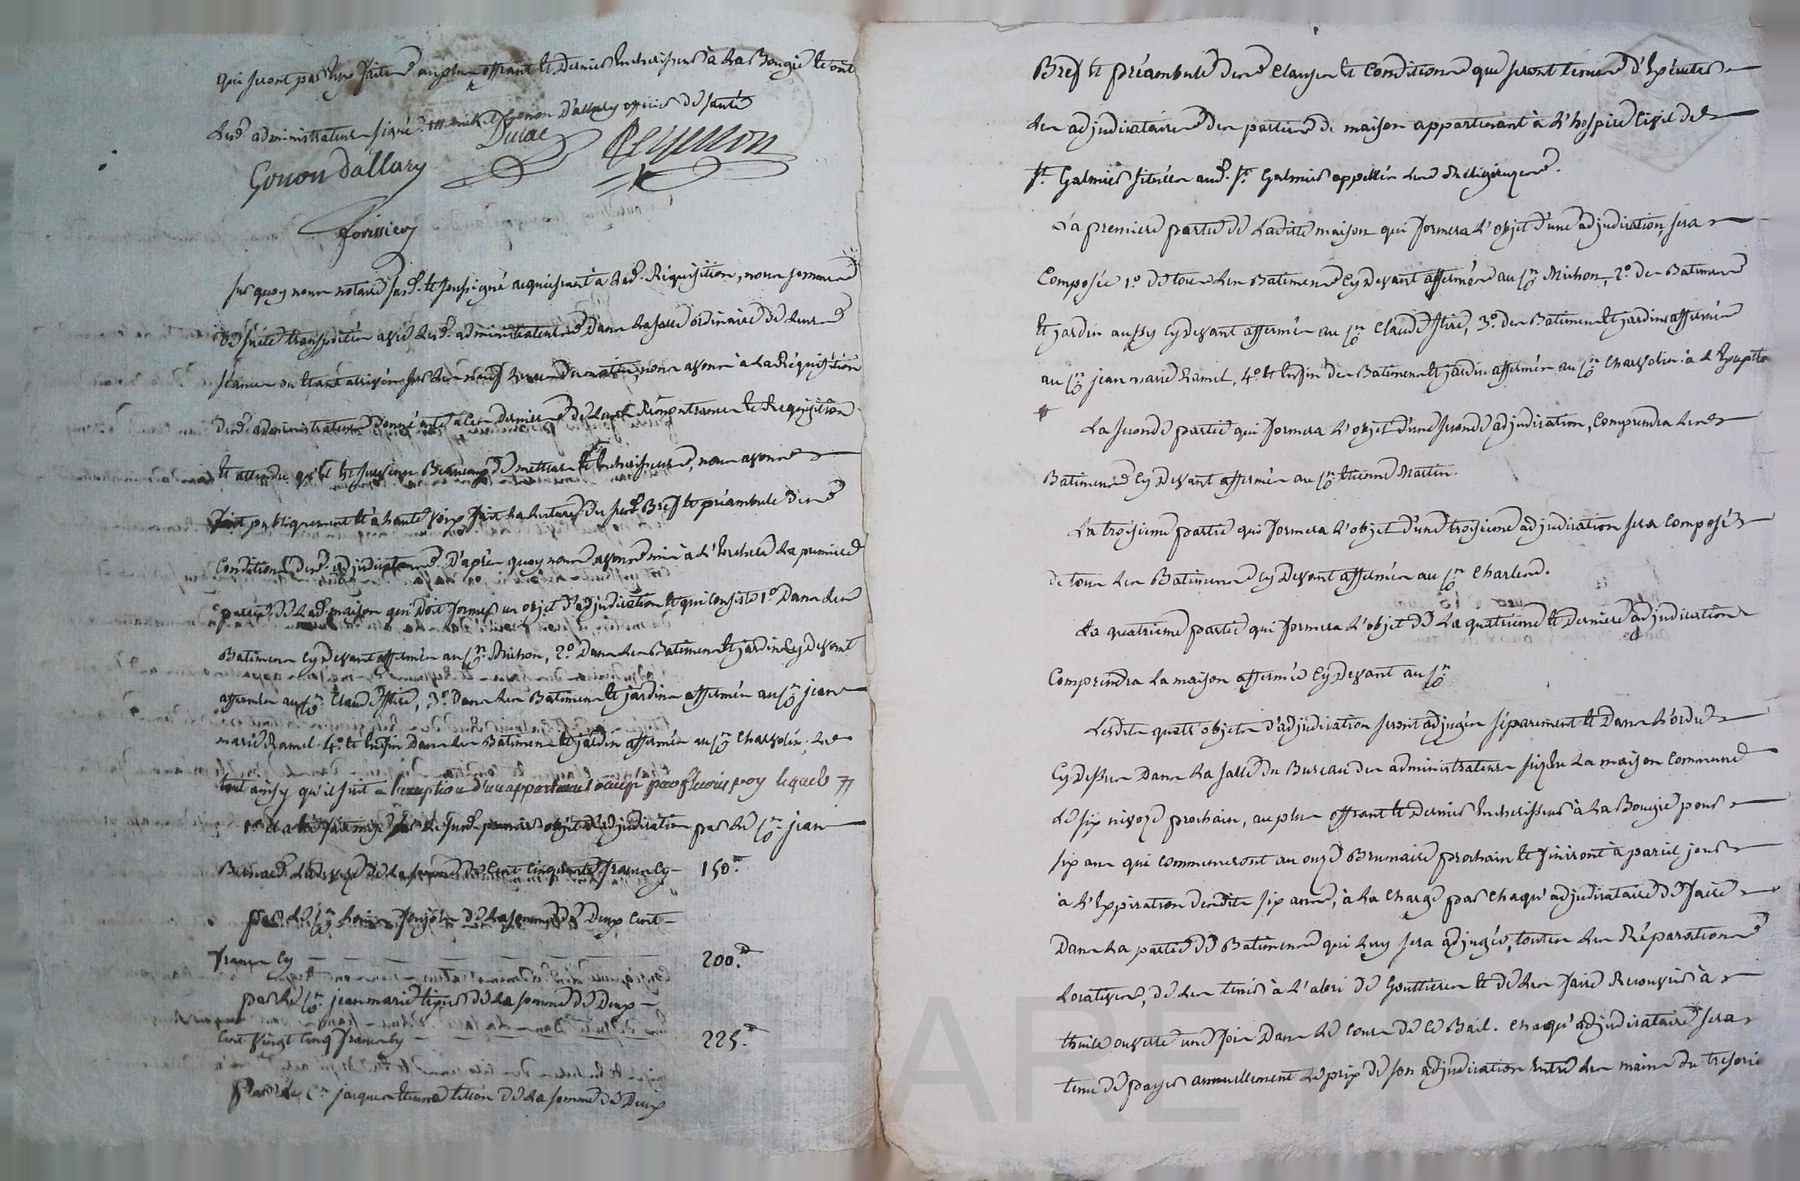 qui seront par eux faites au plus offrant et dernier encherisseur à la Bougie le tout
lesd. administrateurs signé Gonon d'allary officier de santé
Durae Reymon
Gonon dallary
forissier
sur quoy nous notaire susd. et soussigné acquiesçant à lad. Réquisition, nous sommes
de suite transportés avec lesd. administrateurs dans la salle ordinaire de leurs
séances ou étant arrivés sur les neuf heures du matin, nous avons à la Réquisition
desd. administrateurs donné acte à ces derniers de leurs Remontrances et Requisition
et attendu qu'il est survenu Beaucoup de metteurs et encherisseurs, nous avons
fait publiquement et à haute voix fait la lecture du susd. Bref et préambule des
Conditions desd. adjudications. D'après quoy nous avons mis à l'enchere la premiere
partie de lad. maison qui doit former un objet d'adjudication et qui consiste 1.° Dans les
Batimens cy devant affermés au C.en Michon, 2.° Dans les Batimens et jardin cy devant
affermés au C.en Claude Stire, 3.° Dans les Batimens et jardins affermés au C.en jean
marie Ramel 4.° et enfin Dans les Batimens et jardin affermés au C.en Charvolin. Le
tout ainsy qu'il suit à l'exception d'un appartement occupé par
par le C.en jean
Bernard de la somme de Cent Cinquante francs Cy 150.
par le C.en de la somme de Deux Cent
francs Cy 200.
par le C.en jean marie de la somme de Deux
Cent vingt Cinq francs Cy 225.
Par le C.en jacques etienne de la somme de Deux
Bref et préambule des Clauses et Conditions que seront tenus d'Executer
les adjudicataires des parties de maison appartenant à l'hospice Civil de
S.t Galmier situées aud. S.t Galmier appellée des Religieuses.
La premiere partie de Ladite maison qui formera l'objet d'une adjudication, sera
Composée 1.° de tous les Batimens Cy Devant affermés au C.en Michon, 2.° des Batimens
et jardin aussy Cy devant affermés au C.en Claude Stire, 3.° des Batimens et jardins affermés
au C.en jean marie Ramel, 4.° et Enfin des Batimens et jardin affermés au C.en Charvolin
La seconde partie qui formera l'objet d'une seconde adjudication, Comprendra les
Batimens Cy Devant affermés au C.en Etienne Martin.
La troisieme partie qui formera l'objet d'une troisieme adjudication sera Composée
de tous les Batimens Cy Devant affermés au C.en Charles.
La quatrieme partie qui formera l'objet de La quatrieme et derniere adjudication
Comprendra la maison affermée Cy Devant au C.en
Lesdits quatre objets d'adjudication seront adjugés séparement et Dans l'ordre
Cy Dessus Dans la salle du Bureau des administrateurs sise en La maison Commune
le six nivoze prochain, au plus offrant et Dernier Encherisseur à la Bougie pour
six ans qui commenceront au onze Brumaire prochain et finiront à pareil jour
à l'Expiration desdits six ans, à la charge par chaqu'adjudicataire de faire
Dans la partie de Batimens qui leur sera adjugée, toutes les Réparations
Locatives, de les tenir à l'abri de Gouttieres et de les faire Recouvrir à
thuile ouverte une fois Dans le Cours de ce Bail. Chaqu'adjudicataire sera
tenu de payer annuellement le prix de son adjudication Entre les mains du trésorier
HAREYRON